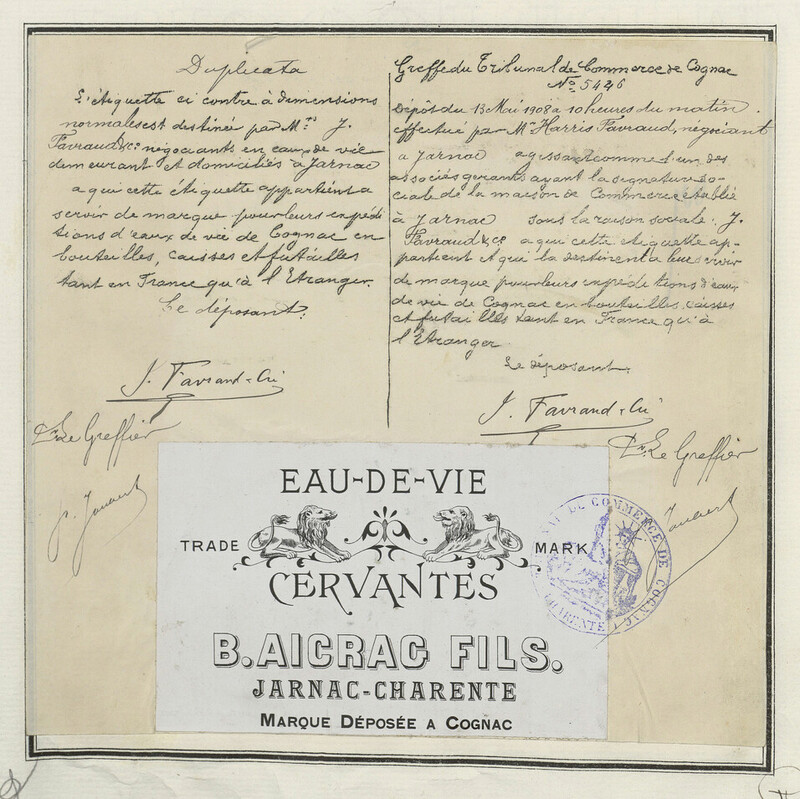 Duplicata
L'étiquette ci contre à dimensions
normales est destinée par Mrs J.
Favraud & Co négociants en eaux de vie
demeurant et domiciliés à Jarnac
a qui cette étiquette appartient a
servir de marque pour leurs expédi
tions d'eaux de vie de Cognac en
bouteilles, caisses et futailles
tant en France qu'à l'Etranger.
Le déposant.
J. Favraud & Cie
Pr Le Greffier
Greffe du Tribunal de Commerce de Cognac
No 5446
Dépôt du 13 Mai 1908 à 10 heures du matin.
effectué par Mr Harris Favraud, négociant
à Jarnac agissant comme l'un des
associés gerants ayant la signature so-
ciale de la maison de Commerce établie
à Jarnac sous la raison sociale: J.
Favraud & Co a qui cette étiquette ap-
partient et qui la destinent a leur servir
de marque pour leurs expéditions d'eaux
de vie de Cognac en bouteilles, caisses
et futailles tant en France qu'à
l'Etranger
Le déposant.
J. Favraud & Cie
Pr Le Greffier
EAU-DE-VIE
TRADE MARK
CERVANTES
B. AICRAG FILS.
JARNAC-CHARENTE
MARQUE DÉPOSÉE A COGNAC
DE COMMERCE DE COGNAC
CHARENTE